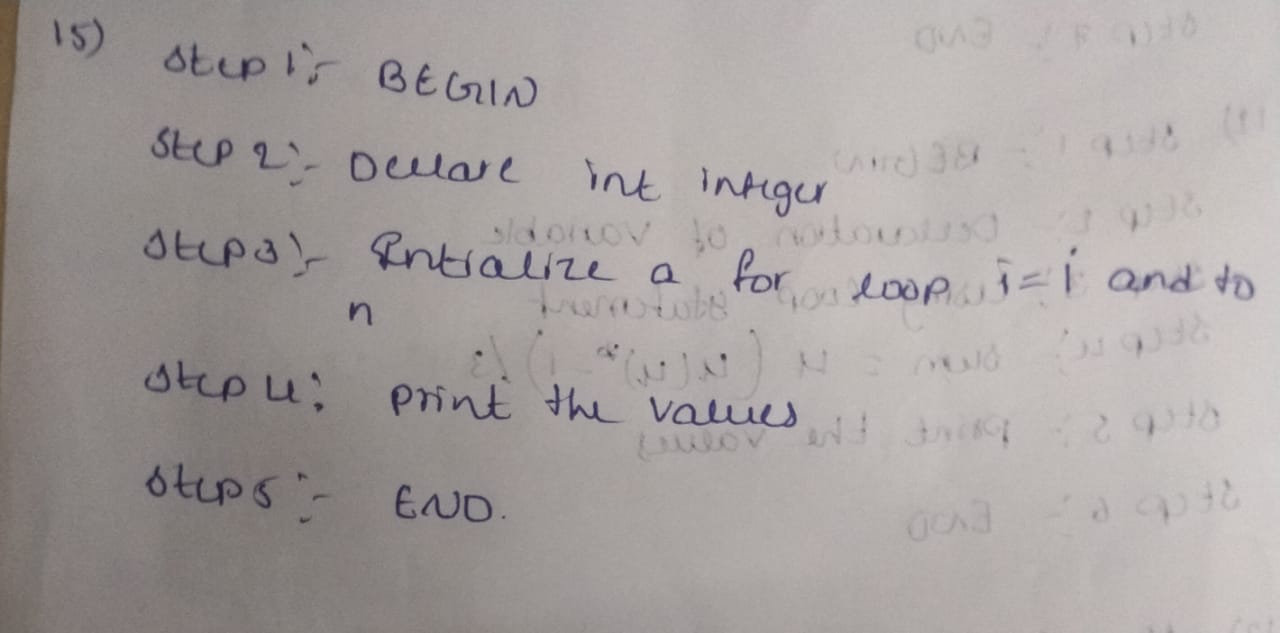 15)
Step 1:- BEGIN
Step 2:- Declare int integer
Step3:- Intialize a for loop i=i and to
n
Step 4: print the values
Step5:- END.